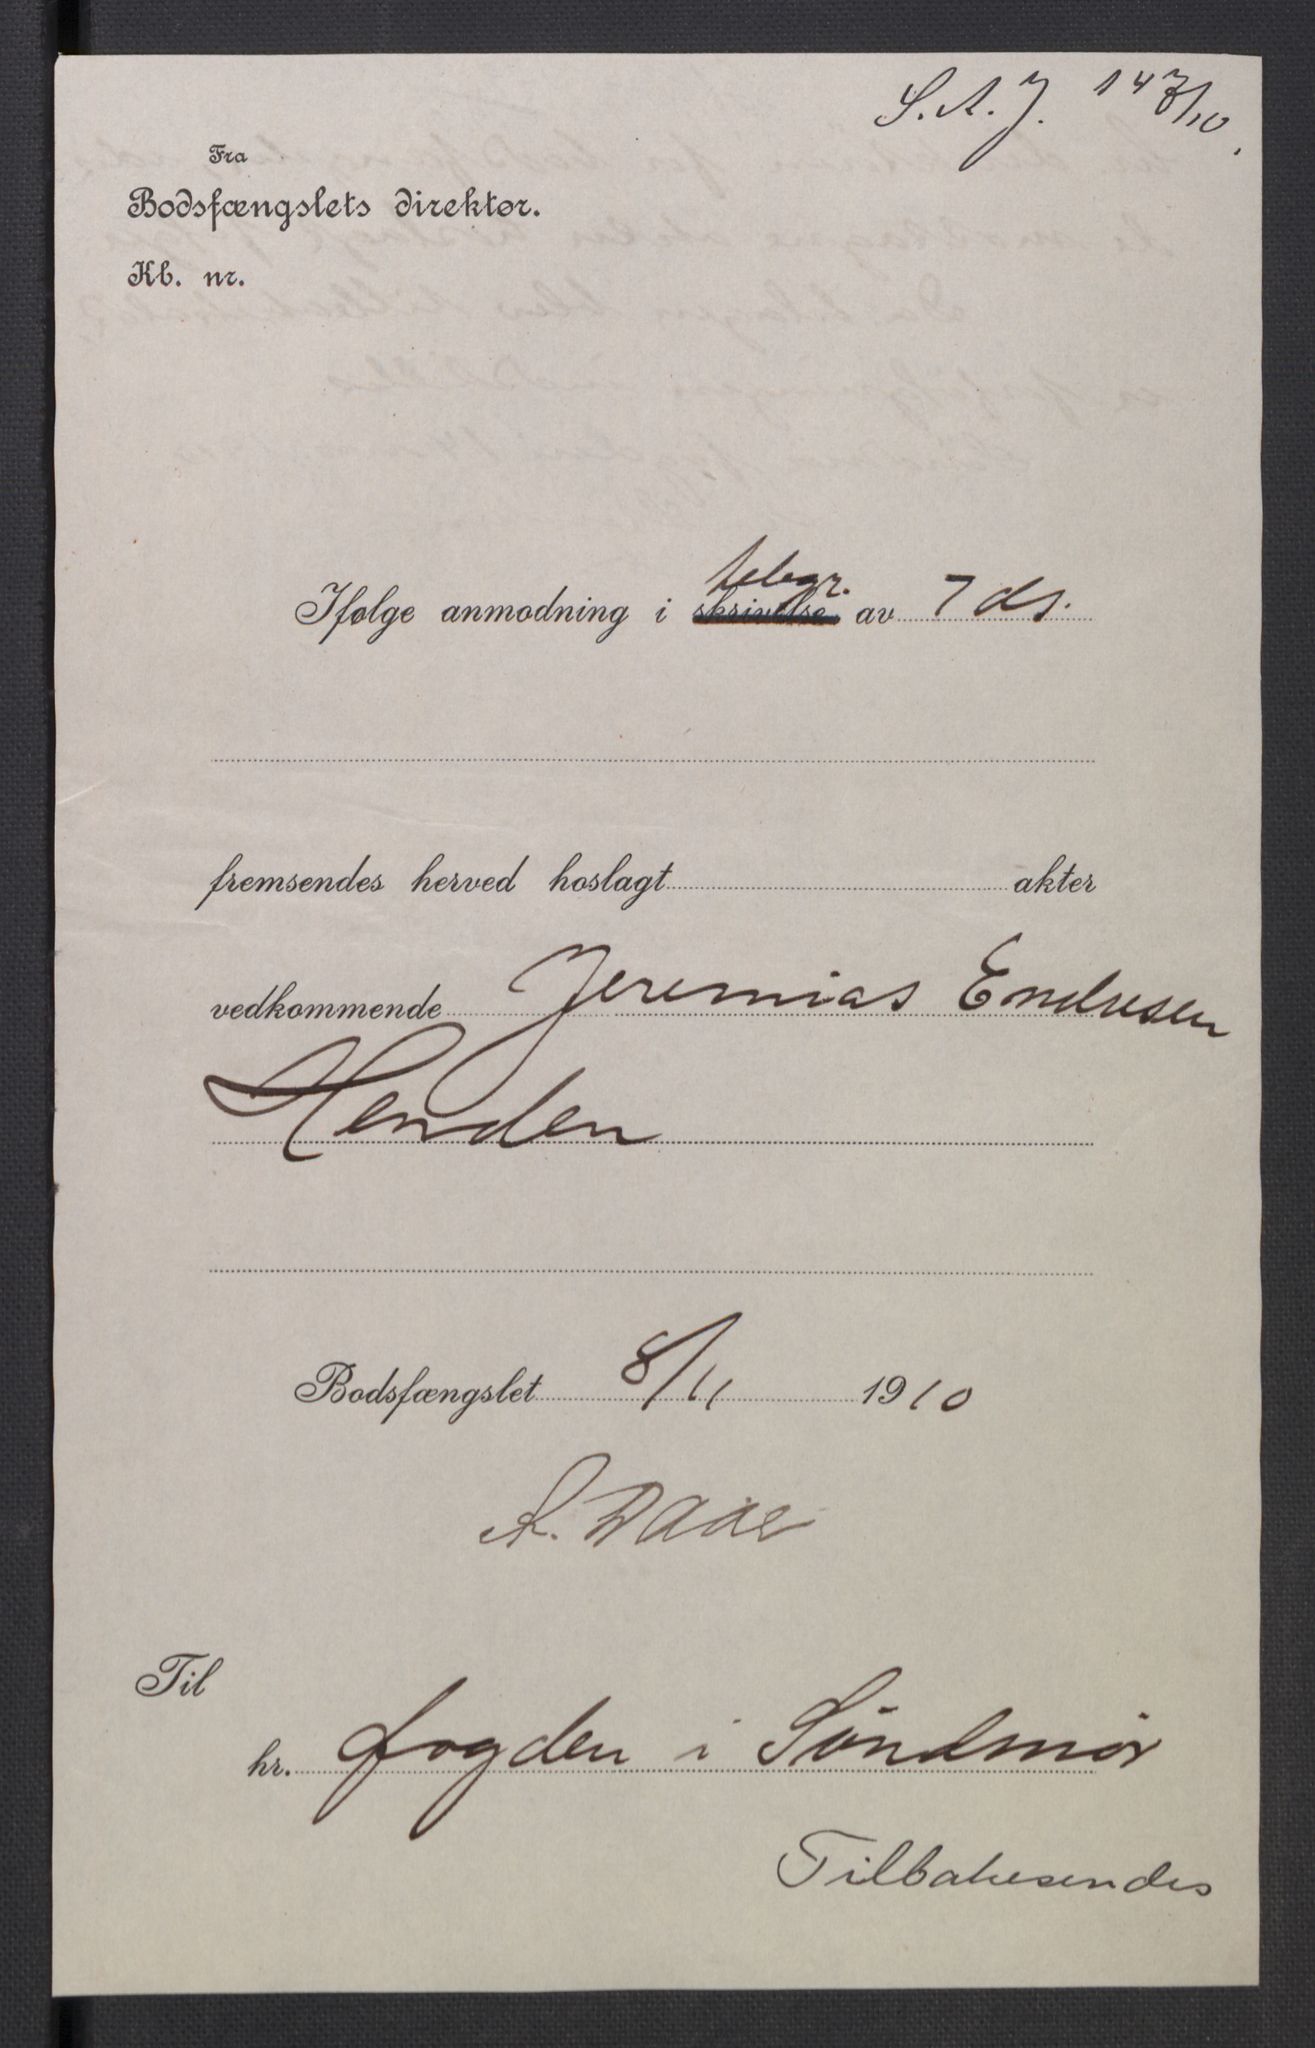 S. A. J. 147/10.
Fra
Bodsfængslets direktør.
Kb. nr.
telegr.
Ifølge anmodning i skrivelse av 7 ds.
fremsendes herved hoslagt akter
vedkommende Jeremias Endresen
Henden
Bodsfængslet 8/11 1910
A. Daae
Til
hr. fogden i Søndmør
Tilbakesendes